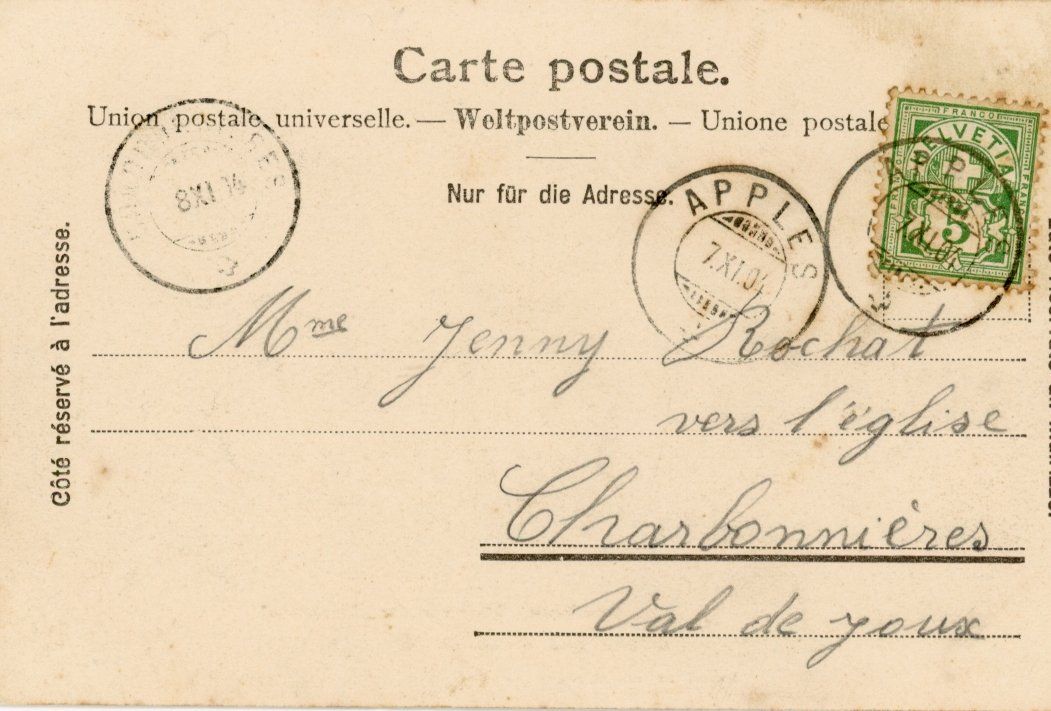 Carte postale.
Union postale universelle. — Weltpostverein. — Unione postale
Nur für die Adresse.
Côté réservé à l'adresse.
8 XI 04
APPLES
7.XI.04
FRANCO
HELVETIA
5
Mme Jenny Rochat
vers l'église
Charbonnières
Val de joux